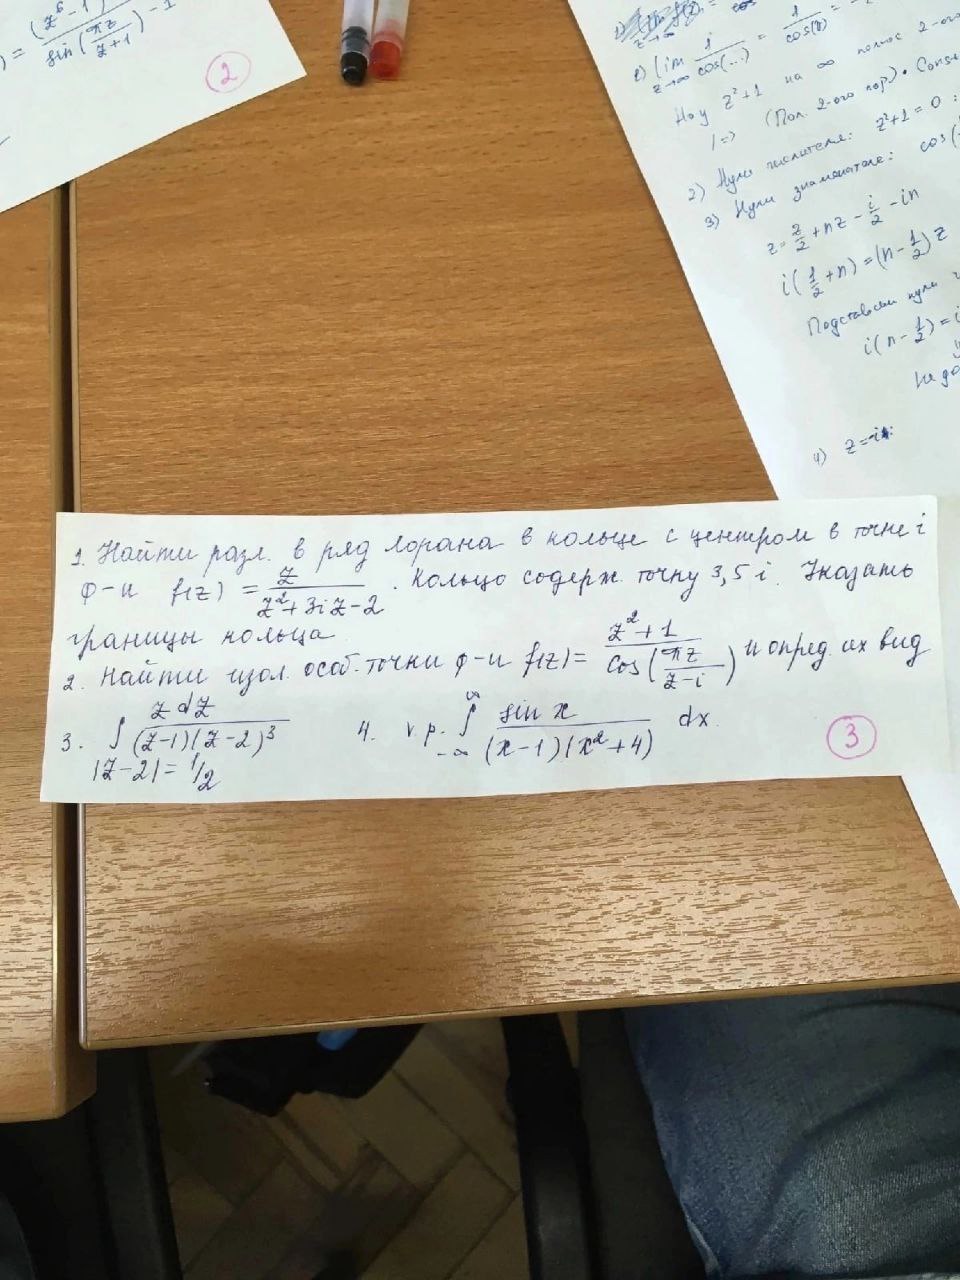 (z⁶-1)
) = ───────── - 1
sin(πz/(z+1))
2
2) lim 1/cos(...) = 1/cos(π) =
z→∞
Но у z²+1 на ∞ полюс 2-ого
|=> (Пол. 2-ого пор) · Const
2) Нули числителя: z²+1=0
3) Нули знаменателя: cos(
z = z/2 + nz - i/2 - in
i(1/2+n) = (n-1/2)z
Подставим нули
i(n-1/2) = i
4) z=-i
1. Найти разл. в ряд Лорана в кольце с центром в точке i
ф-и f(z) = z/(z²+3iz-2). Кольцо содерж. точку 3,5i. Указать
границы кольца.
2. Найти изол. особ. точки ф-и f(z) = (z²+1)/cos(πz/(z-i)) и опред. их вид
3. ∫ z dz/((z-1)(z-2)³) 4. v.p. ∫ sin x/((x-1)(x²+4)) dx
|z-2|=1/2 -∞ ∞
3